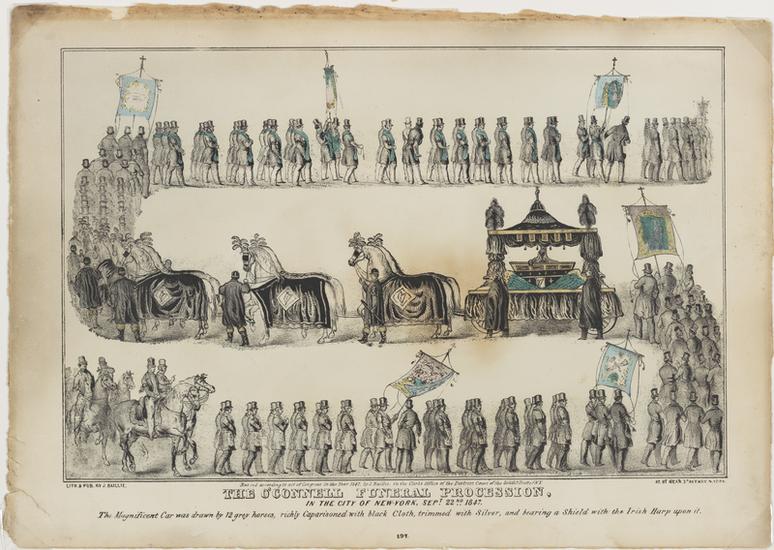 LITH. & PUB. BY J. BAILLIE.
Entered according to act of Congress in the Year 1847 by J. Baillie, in the Clerks Office of the District Court of the South.n Dist. N.Y.
87th ST. NEAR 3rd AVENUE N. YORK
THE O'CONNELL FUNERAL PROCESSION,
IN THE CITY OF NEW-YORK, SEPT. 22ND 1847.
The Magnificent Car was drawn by 12 grey horses, richly Caparisoned with black Cloth, trimmed with Silver, and bearing a Shield with the Irish Harp upon it.
197.